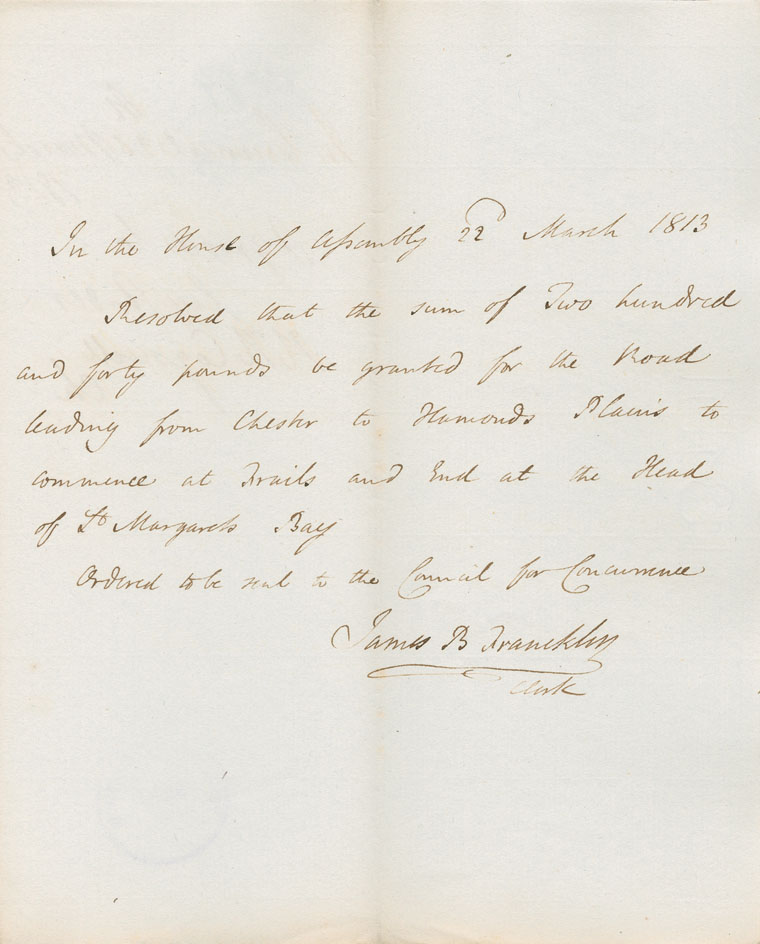 In the House of Assembly 22d March 1813
Resolved that the sum of Two hundred
and forty pounds be granted for the Road
leading from Chester to Hamonds Plains to
commence at Frails and End at the Head
of St Margarets Bay
Ordered to be sent to the Council for Concurrence
James B Francklin
Clerk